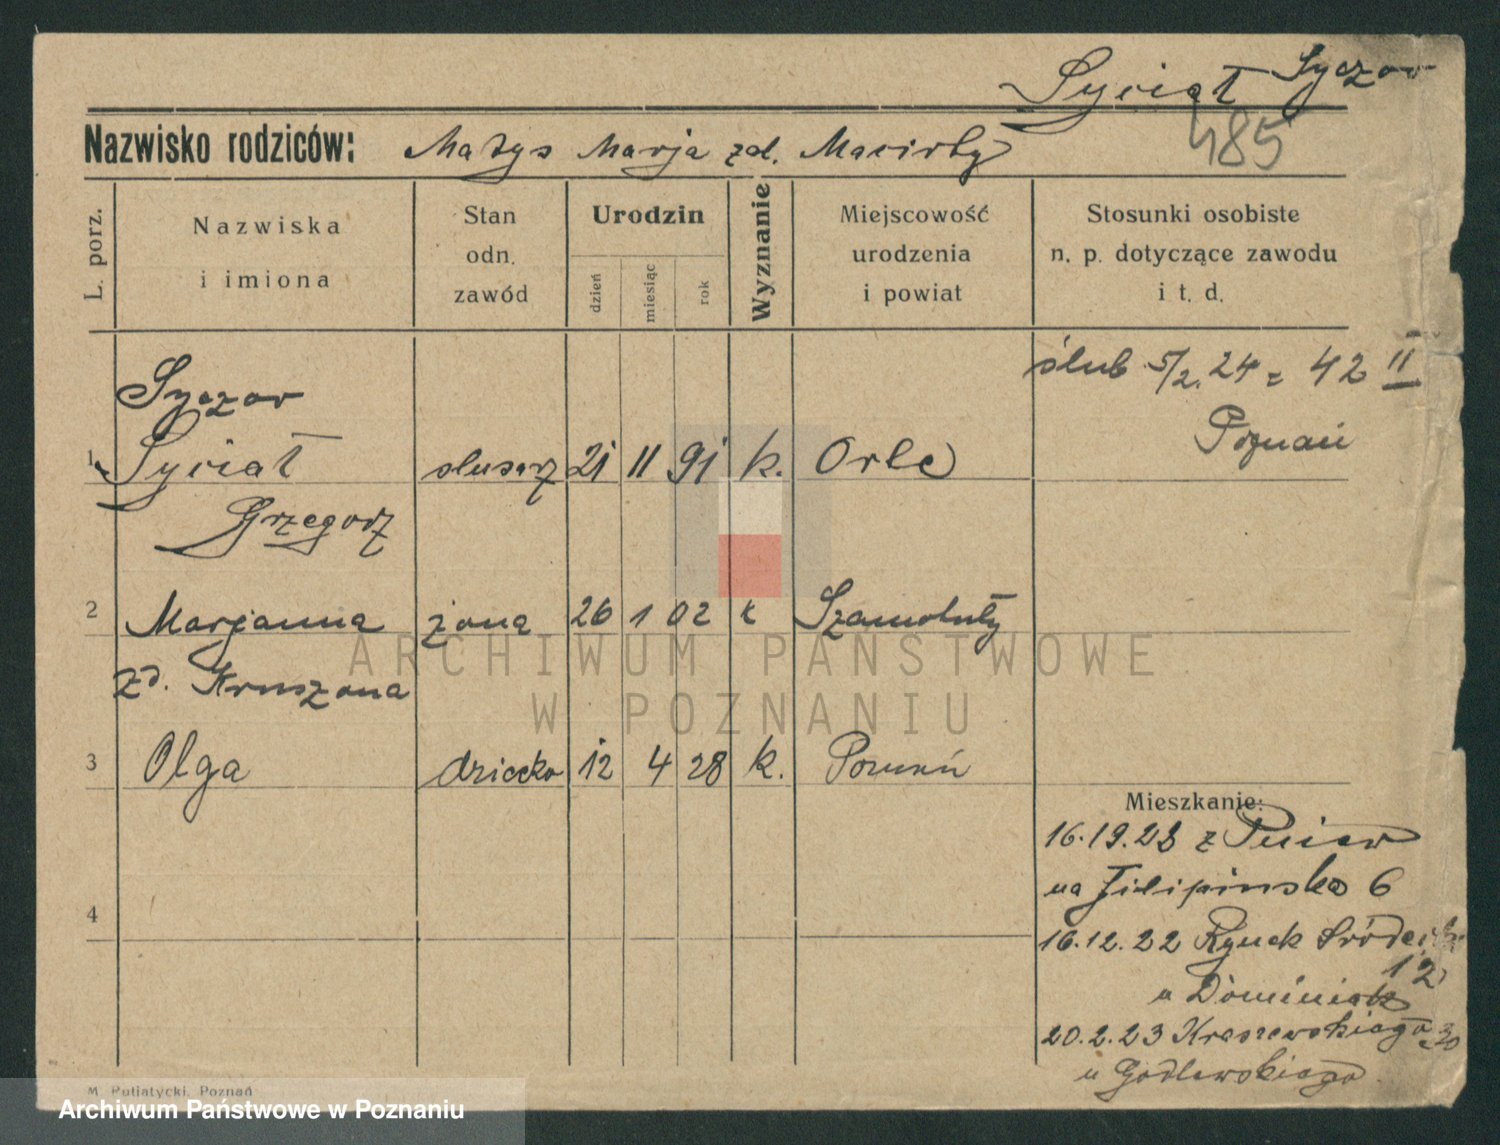 Syciał Syczow
485
Nazwisko rodziców: Matys Marja zd.
L. porz.
Nazwiska
i imiona
Stan
odn.
zawód
Urodzin
dzień
miesiąc
rok
Wyznanie
Miejscowość
urodzenia
i powiat
Stosunki osobiste
n. p. dotyczące zawodu
i t. d.
ślub 5/2. 24 = 42 II
Poznań
Syczow
1 Syciał ślusarz 21 11 91 k. Orle
Grzegorz
2 Marjanna żona 26 1 02 k Szamotuły
zd. Kruszona
3 Olga dziecko 12 4 28 k. Poznań
4
Mieszkanie:
z Pniew
na Filipińska 6
16.12.22 Rynek Śródecki
12
u Dominiak
20.2.23 Kraszewskiego 30
u Godlewskiego
M. Putiatycki, Poznań
ARCHIWUM PAŃSTWOWE
W POZNANIU
Archiwum Państwowe w Poznaniu